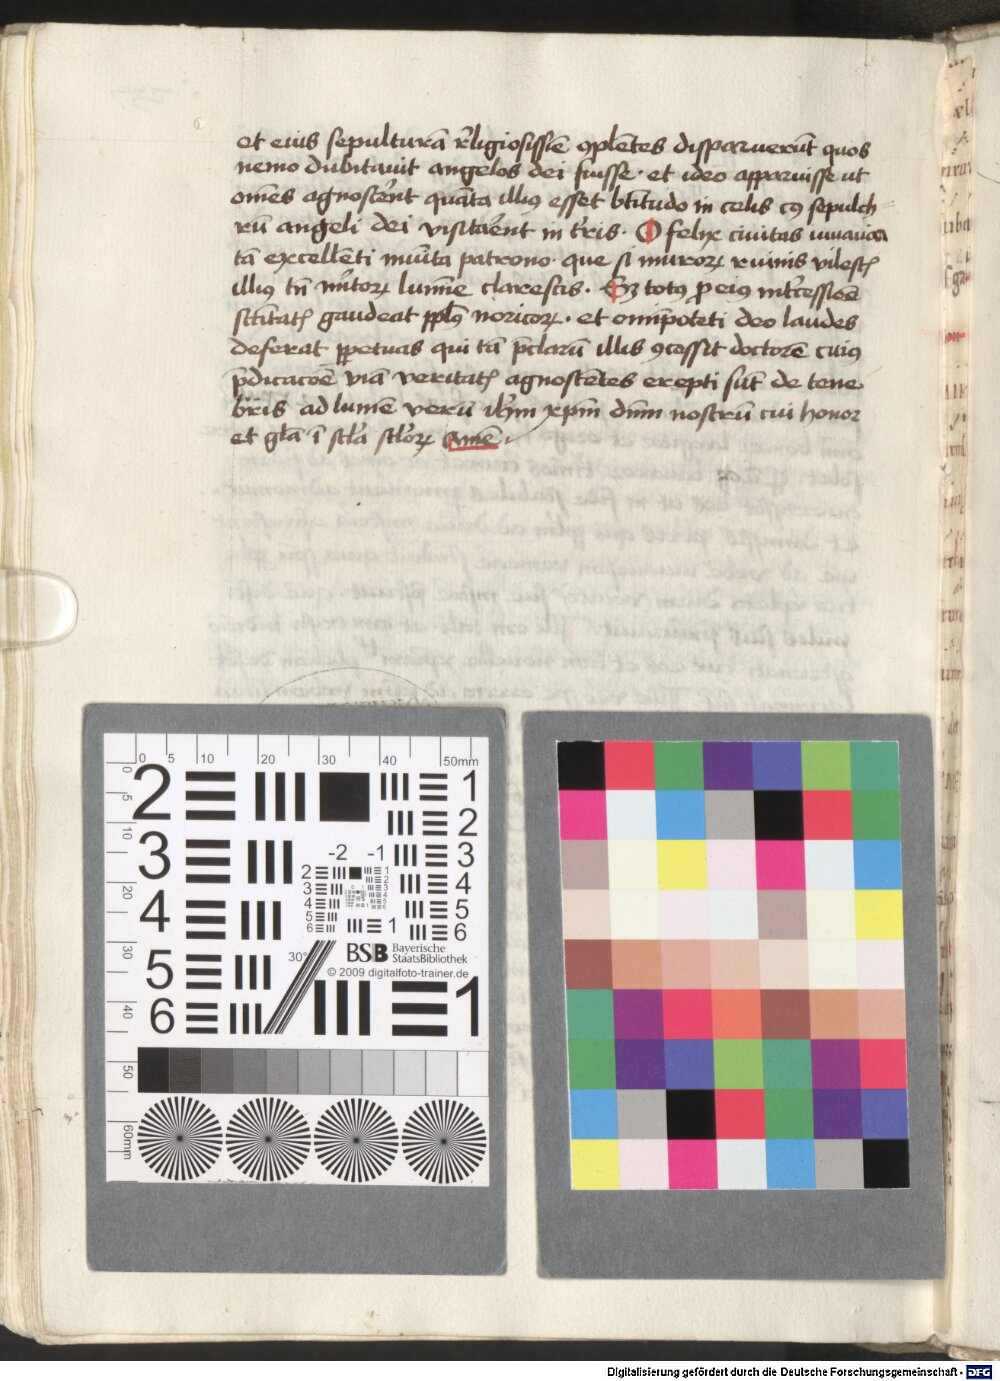 et eius sepulturā r̄ligiosissīe ꝯplētes disparuerūt quos
nemo dubitauit angelos dei fuisse · et ideo apparuisse ut
om̄es agnoscer̄ent quāta illiꝰ esset btitudo in celis cꝰ sepulch
rū angeli dei visitar̄ent in tr̄is · O felix ciuitas iuuauia
tā excellenti munīta patrono · que si muroꝝ ruinis vilescꝭ
illiꝰ tn̄ mr̄itoꝝ lumīe clarescis · Sꝫ totꝰ ꝓ eiꝰ int̄cessiōe
sctitatꝭ gaudeat pplꝰ noricoꝝ · et omīpoteti deo laudes
deferat ꝑpetuas qui tā p̄clarū illis ꝯcessit doctorē cuiꝰ
p̄dicacōe viā veritatꝭ agnoscētes erepti sūt de tene
bris ad lumē verū ih̄m xp̄m dn̄m nostrū cui honor
et gl̄a ī scl̄a scl̄oꝝ Amē ·
0 5 10 20 30 40 50mm
0 5 10 20 30 40 50 60mm
2 3 4 5 6
1 2 3 4 5 6
-2 -1
2 3 4 5 6
1
30°
BSB Bayerische
StaatsBibliothek
© 2009 digitalfoto-trainer.de
1
Digitalisierung gefördert durch die Deutsche Forschungsgemeinschaft - DFG